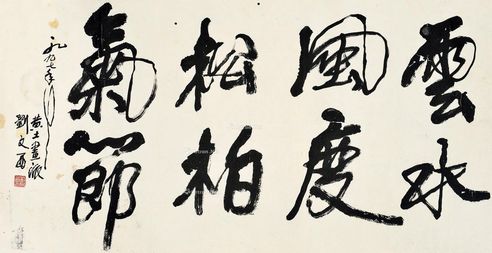 雲水
風度
松柏
氣節
一九九七年
黄土畫派
劉文西